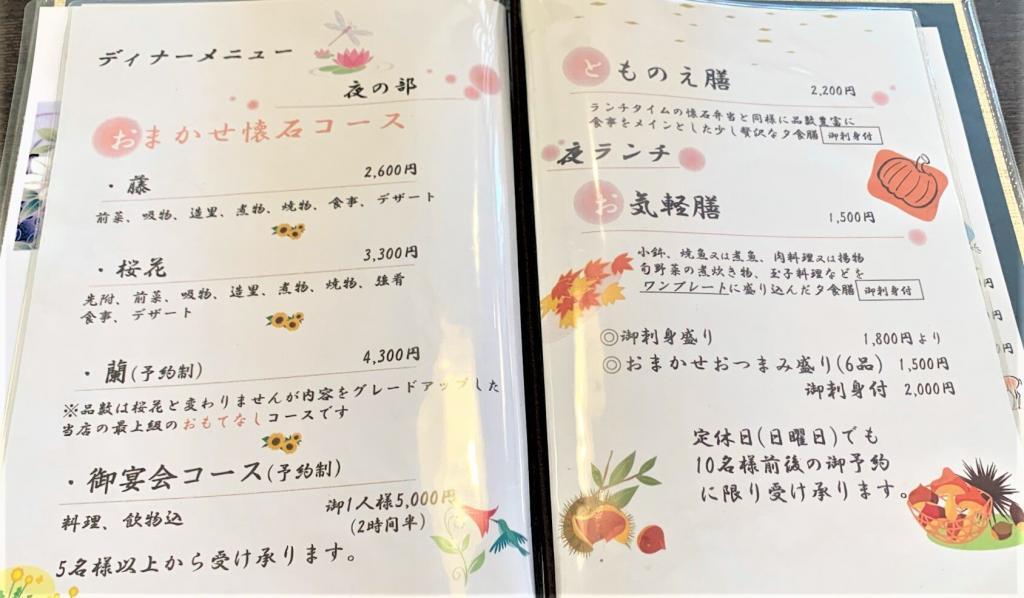 ディナーメニュー
夜の部
おまかせ懐石コース
・藤 2,600円
前菜、吸物、造里、煮物、焼物、食事、デザート
・桜花 3,300円
先附、前菜、吸物、造里、煮物、焼物、強肴
食事、デザート
・蘭(予約制) 4,300円
※品数は桜花と変わりませんが内容をグレードアップした
当店の最上級のおもてなしコースです
・御宴会コース(予約制)
料理、飲物込 御1人様5,000円
(2時間半)
5名様以上から受け承ります。
とものえ膳 2,200円
ランチタイムの懐石弁当と同様に品数豊富に
食事をメインとした少し贅沢な夕食膳 御刺身付
夜ランチ
お気軽膳 1,500円
小鉢、焼魚又は煮魚、肉料理又は揚物
旬野菜の煮炊き物、玉子料理などを
ワンプレートに盛り込んだ夕食膳 御刺身付
◎御刺身盛り 1,800円より
◎おまかせおつまみ盛り(6品) 1,500円
御刺身付 2,000円
定休日(日曜日)でも
10名様前後の御予約
に限り受け承ります。
円
円